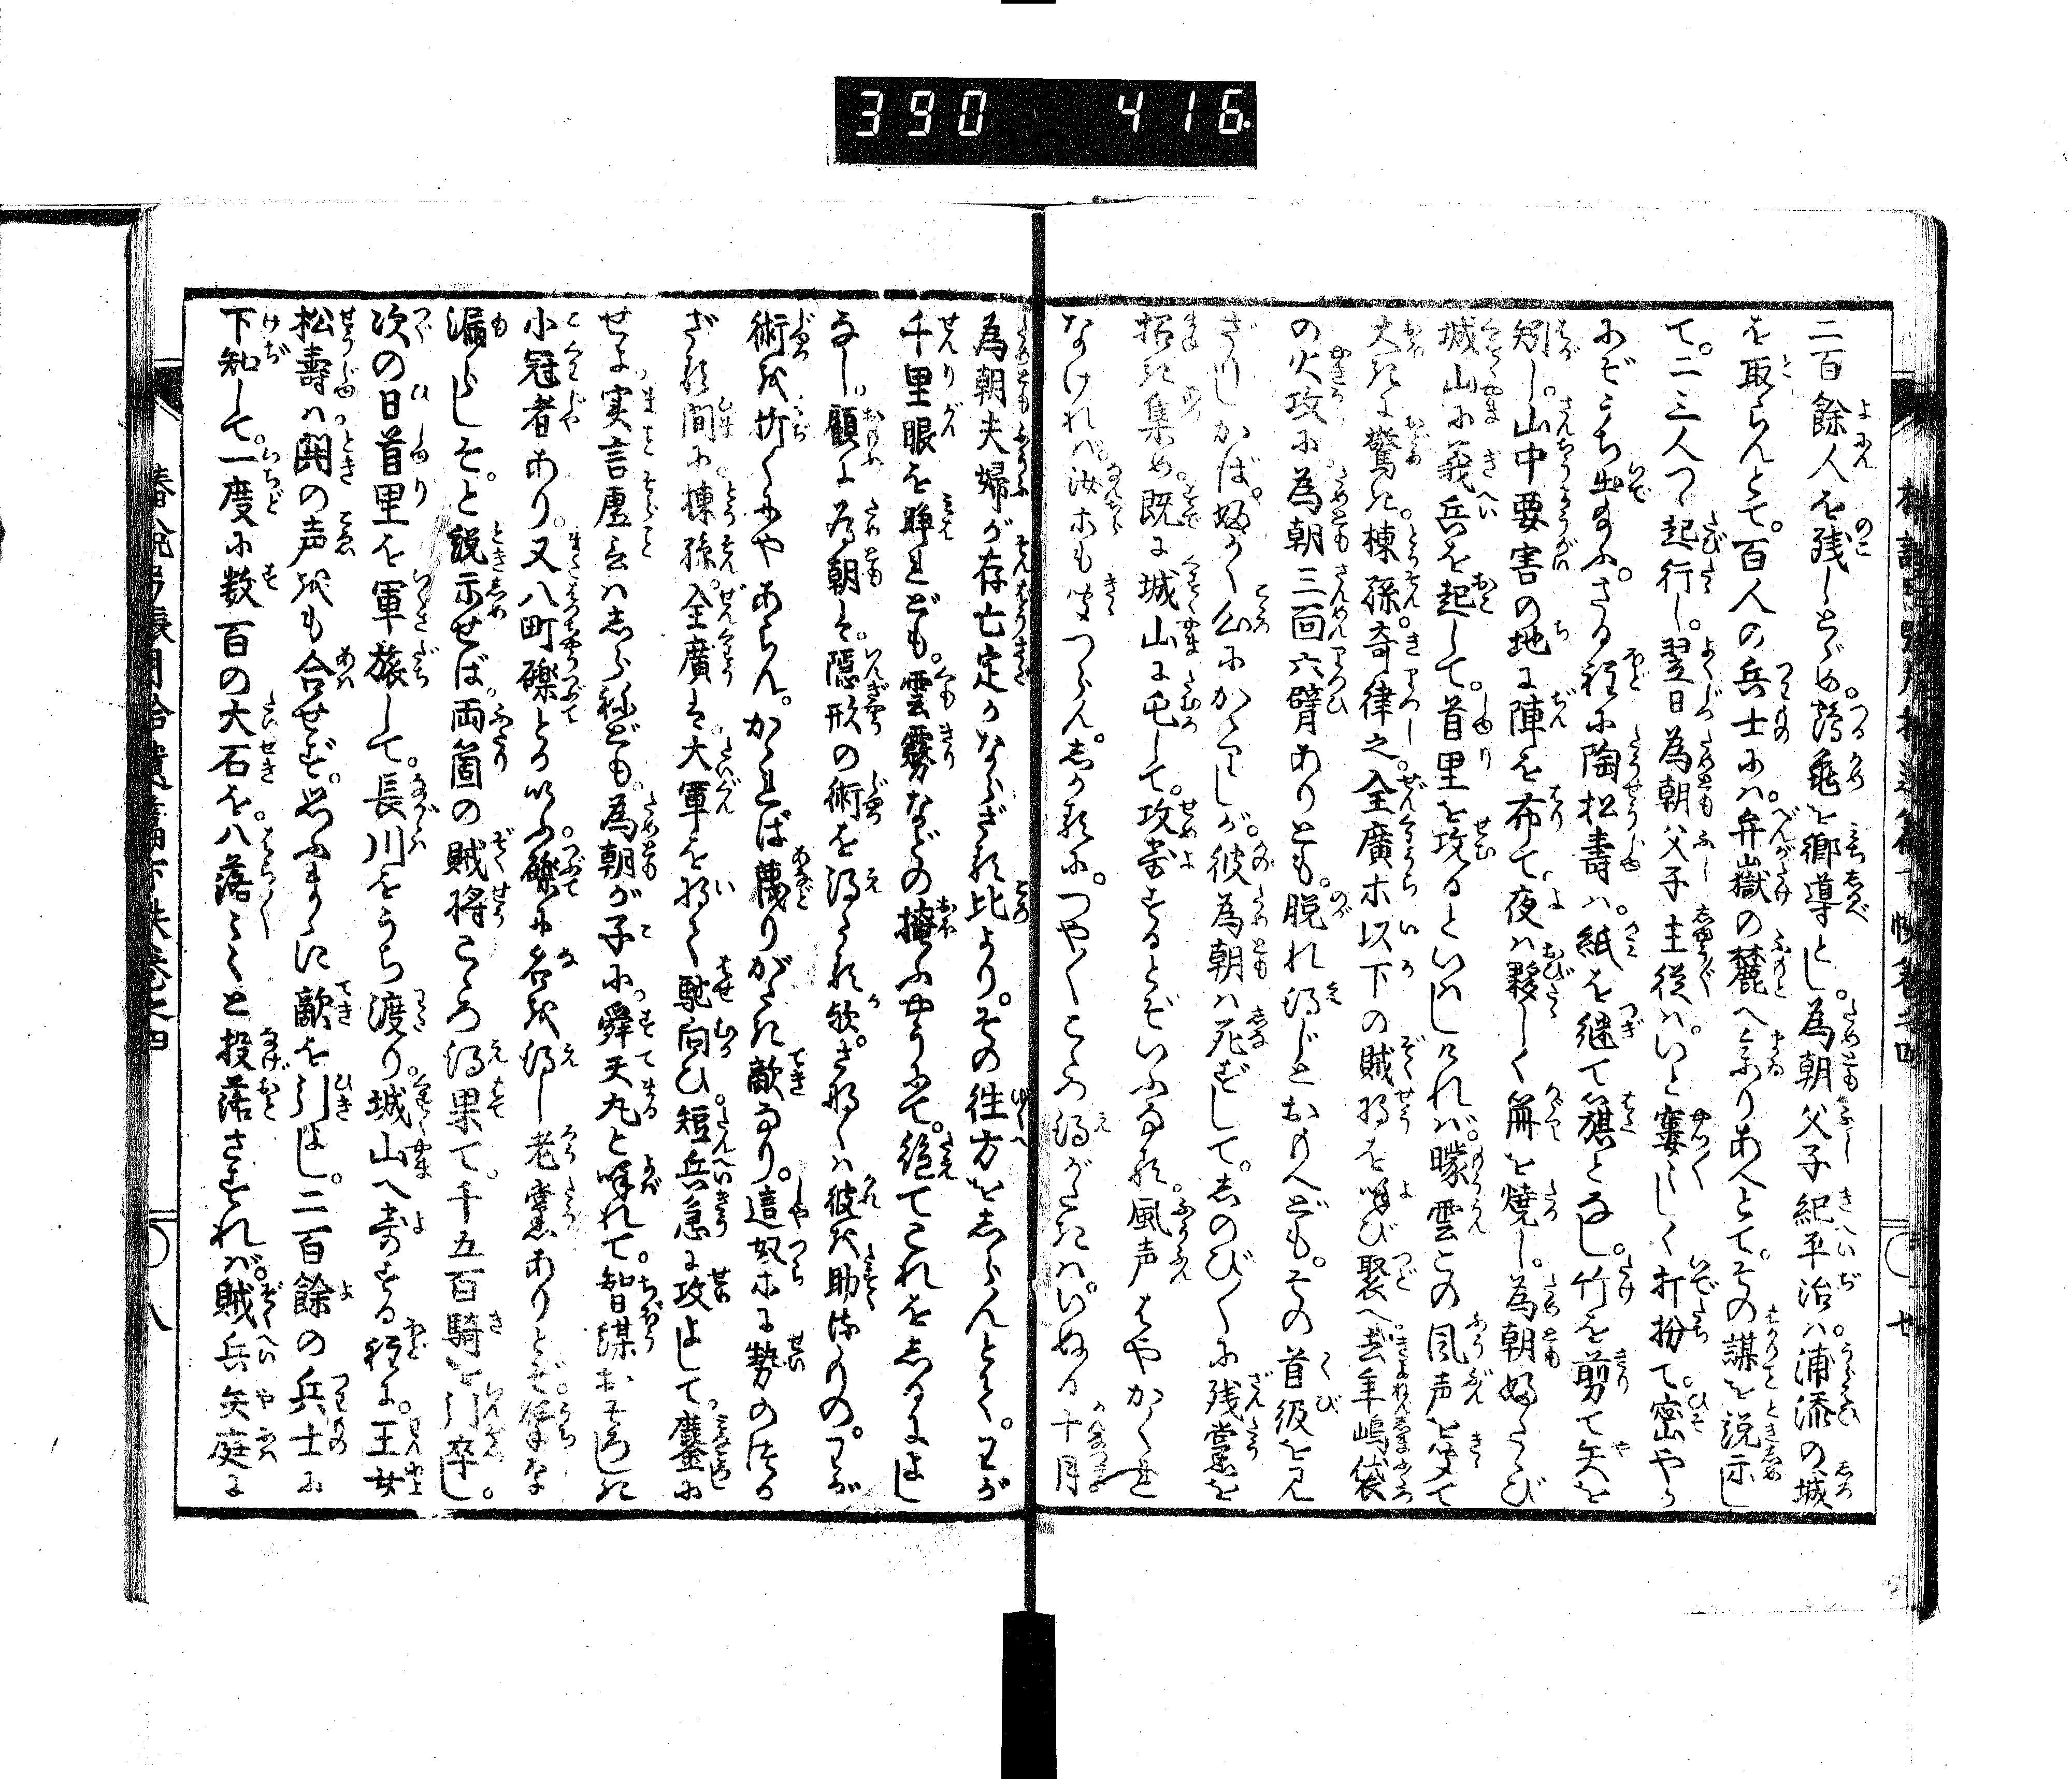 390 416
二百餘人を残しとゞめ。鶴亀を郷導とし。為朝父子紀平治ハ。浦添の城
を取らんとて。百人の兵士にハ。弁嶽の麓へ参りあへとて。その謀を説示し
て。二三人づゝ起行し。翌日為朝父子主従ハ。いと窶々しく打扮て。密やか
にぞうち出給ふ。さる程に陶松壽ハ。紙を継て籏となし。竹を剪て矢を
矧し。山中要害の地に陣を布て。夜ハ夥しく篝を焼し。為朝ふたゝび
城山に義兵を起して。首里を攻るといはしければ。曚雲この風声を聞て
大きに驚き。棟孫。奇律之。全廣ホ以下の賊将を呼び聚へ。去年嶋袋
の火攻に。為朝三面六臂ありとも。脱れ得じとおもへども。その首級を見
ざりしかば。ふかく心にかゝりしが。彼為朝ハ死ずして。しのび〳〵に残黨を
招き集め。既に城山に屯して。攻寄するとぞいふなる。風声はやかくれ
なければ。汝ホも聞つらん。しかるに。つや〳〵こゝろ得がたきハ。いぬる十月
為朝夫婦が存亡定かならざる比より。その往方をしらんとて。わが
千里眼を睜れども。雲霧などの掩ふやうにて。絶てこれをしるによし
なし。顧に為朝は。隠形の術を得たる欤。さなくハ彼を助るもの。わが
術を折くにやあらん。かゝれば蔑りがたき敵なり。這奴ホに勢のつか
ざる間に。棟孫。全廣は。大軍を将て馳向ひ。短兵急に攻よして。鏖に
せよ。実言虚言ハしらねども。為朝が子に。舜天丸と呼れて。智謀おそろしき
小冠者あり。又八町礫とかいふ。礫に名を得し老黨ありとぞ。撃な
漏らしそ。と説示せば。両箇の賊将こゝろ得果て。千五百騎を引卒し。
次の日首里を軍旅して。長川をうち渡り。城山へ寄する程に。王女
松壽ハ。鬨の声をも合せず。思ふまゝに敵を引よし。二百餘の兵士に
下知して。一度に数百の大石を。八落々々と投落さすれば。賊兵矢庭に
椿説弓張月拾遺篇下帙巻之四
八